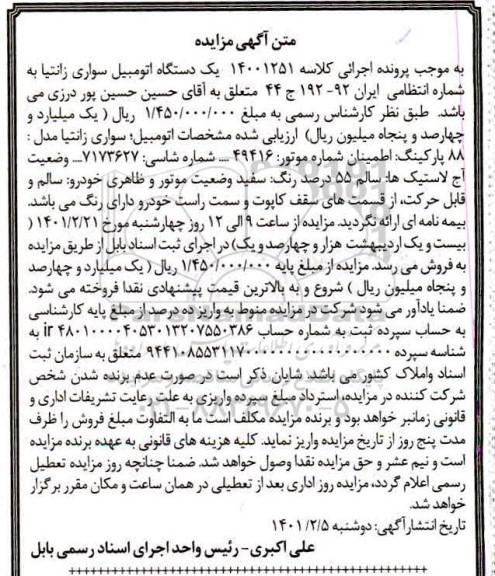 متن آگهی مزایده
به موجب پرونده اجرائی کلاسه ۱۴۰۰۱۲۵۱ یک دستگاه اتومبیل سواری زانتیا به
شماره انتظامی ایران ۹۲- ۱۹۲ ج ۴۴ متعلق به آقای حسین حسین پور درزی می
باشد. طبق نظر کارشناس رسمی به مبلغ ۱/۴۵۰/۰۰۰/۰۰۰ ریال ( یک میلیارد و
چهارصد و پنجاه میلیون ریال) ارزیابی شده مشخصات اتومبیل؛ سواری زانتیا مدل :
۸۸ پارکینگ: اطمینان شماره موتور: ۴۹۴۱۶ .... شماره شاسی: ۷۱۷۳۶۲۷.... وضعیت
آج لاستیک ها: سالم ۵۵ درصد رنگ: سفید وضعیت موتور و ظاهری خودرو: سالم و
قابل حرکت، از قسمت های سقف کاپوت و سمت راست خودرو دارای رنگ می باشد.
بیمه نامه ای ارائه نگردید. مزایده از ساعت ۹ الی ۱۲ روز چهارشنبه مورخ ۱۴۰۱/۲/۲۱ (
بیست و یک اردیبهشت هزار و چهارصد و یک) در اجرای ثبت اسناد بابل از طریق مزایده
به فروش می رسد. مزایده از مبلغ پایه ۱/۴۵۰/۰۰۰/۰۰۰ ریال ( یک میلیارد و چهارصد
و پنجاه میلیون ریال ) شروع و به بالاترین قیمت پیشنهادی نقدا فروخته می شود.
ضمنا یادآور می شود شرکت در مزایده منوط به واریز ده درصد از مبلغ پایه کارشناسی
به حساب سپرده ثبت به شماره حساب ir ۴۸۰۱۰۰۰۰۴۰۵۳۰۱۳۲۰۷۵۵۰۳۸۶ به
شناسه سپرده متعلق به سازمان ثبت
اسناد واملاک کشور می باشد. شایان ذکر است در صورت عدم برنده شدن شخص
شرکت کننده در مزایده، استرداد مبلغ سپرده واریزی به علت رعایت تشریفات اداری و
قانونی زمانبر خواهد بود و برنده مزایده مکلف است ما به التفاوت مبلغ فروش را ظرف
مدت پنج روز از تاریخ مزایده واریز نماید. کلیه هزینه های قانونی به عهده برنده مزایده
است و نیم عشر و حق مزایده نقدا وصول خواهد شد. ضمنا چنانچه روز مزایده تعطیل
رسمی اعلام گردد، مزایده روز اداری بعد از تعطیلی در همان ساعت و مکان مقرر برگزار
خواهد شد.
تاریخ انتشار آگهی: دوشنبه ۱۴۰۱/۲/۵
علی اکبری- رئیس واحد اجرای اسناد رسمی بابل